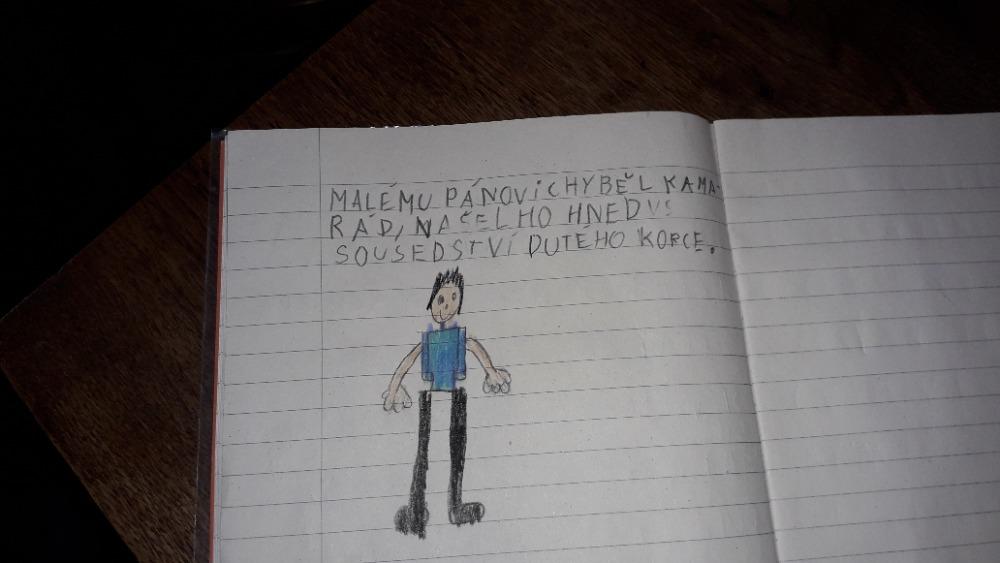 MALÉMU PÁNOVI CHYBĚL KAMA-
RÁD, NAČEL HO HNED VS
SOUSEDSTVÍ DUTÉHO KORCE.